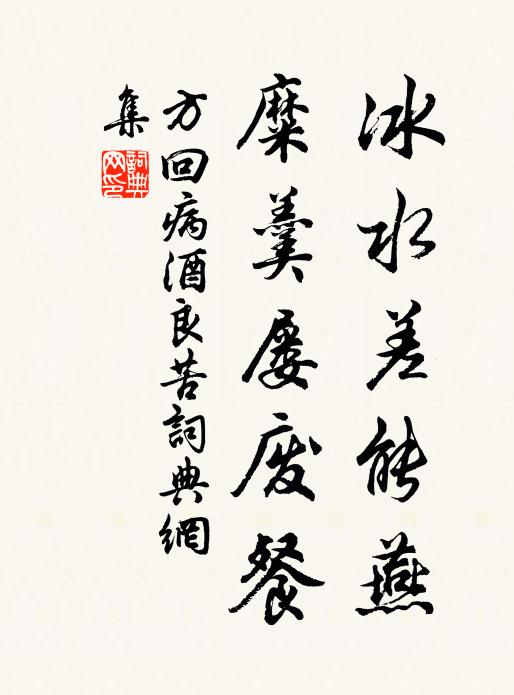 冰水差能燕
糜羹屡废餐
方回病酒良苦詞典網
集
詞典網印